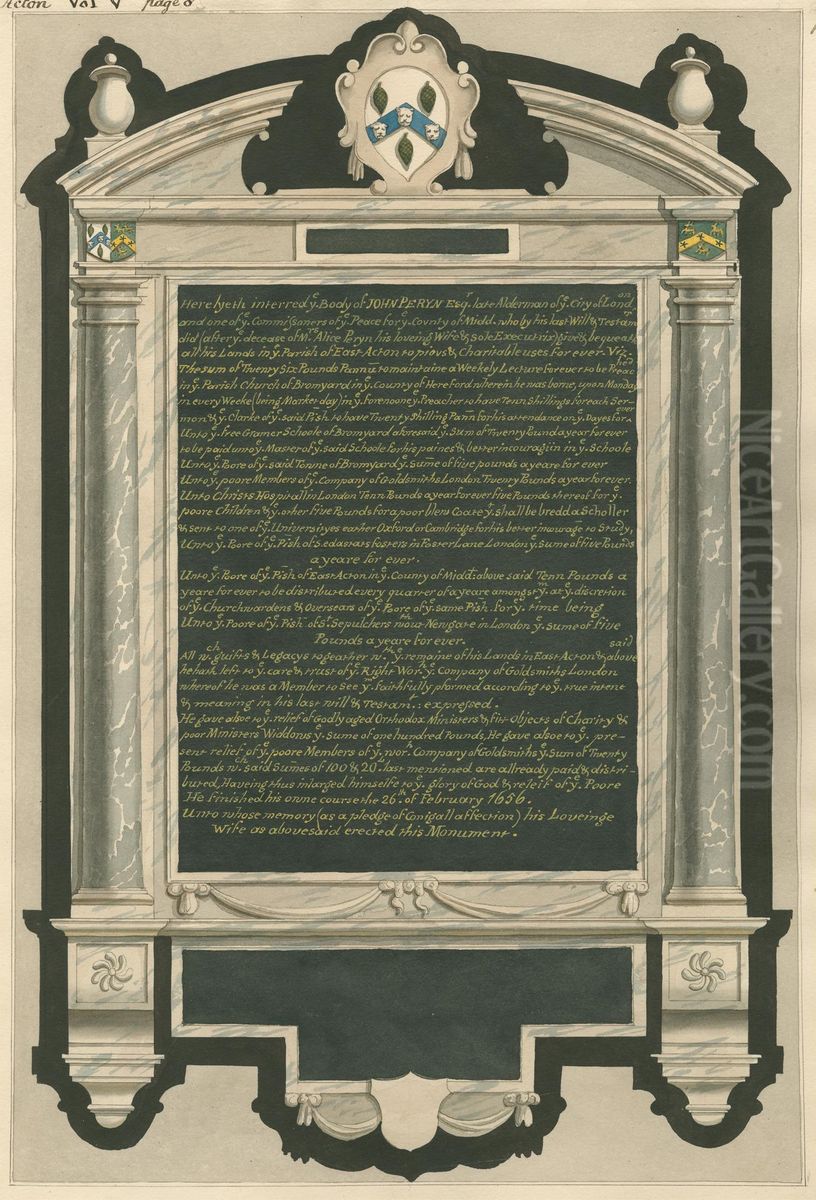 Acton Vol V page 8
Here lyeth interred yͤ Body of JOHN PERYN Esqʳ. late Alderman of yͤ. City of Londͦⁿ
and one of yͤ. Commissoners of yͤ. Peace for yͤ. County of Midd. who by his last Will & Testam
did (after yͤ. decease of Mʳˢ Alice Peryn his loveing Wife & Sole Executrix) give & bequeath
all his Lands in yͤ. Parish of East Acton to pious & Charitable uses for ever. Viz.
The sum of Twenty Six Pounds P annu to maintaine a Weekely Lecture For ever to be Preached
in yͤ. Parish Church of Bromyard in yͤ. County of Hereford wherein he was borne, upon Monday
in every Weeke (being Market day) in yͤ. Forenoon yͤ. Preacher to have Tenn Shillings for each Ser-
mon & yͤ. Clarke of yͤ. said Pish. to have Twenty Shilling P ann for his attendance on yͤ. Dayes for ever
Unto yͤ. Free Gramer Schoole of Bromyard aforesaid yͤ. Sum of Twenty Pound a year for ever
to be paid unto yͤ. Master of yͤ. said Schoole for his paines & better incouragm in yͤ. Schoole
Unto yͤ. Poore of yͤ. said Towne of Bromyard yͤ. Sume of five pounds a yeare for ever
Unto yͤ. poore Members of yͤ. Company of Goldsmiths London Twenty Pounds a year for ever.
Unto Christs Hospitall in London Tenn Pounds a year for ever five Pounds thereof for yͤ.
poore Children & yͤ. other five Pounds for a poor blew Coate yͭ. shall be bredd a Scholler
& sent to one of yͤ. Universityes eather Oxford or Cambridge for his better in to Study,
Unto yͤ. Poore of yͤ. Pish of S. fosters in Foster Lane London yͤ. Sume of five Pounds
a yeare for ever.
Unto yͤ. Poore of yͤ. Pish of East Acton in yͤ. County of Midd: above said Tenn Pounds a
yeare for ever to be distributed every quarter of a yeare amongst yͫ. at yͤ. discretion
of yͤ. Churchwardens & Oversears of yͤ. Poore of yͤ. same Pish for yͤ. time being
Unto yͤ. Poore of yͤ. Pish of Sͭ. Sepulchers Newgate in London yͤ. Sume of five
Pounds a yeare for ever.
All wᶜʰ. guifts & Legacys togeather wᵗʰ yͤ. remaine of his Lands in East Acton & above said
he hath left to yͤ. care & trust of yͤ. Right Worʰ. yͤ. Company of Goldsmiths London
whereof he was a Member to See yͫ. faithfully pformed according to yͤ. true intent
& meaning in his last will & Testam: expressed.
He gave alsoe to yͤ. relief of Godly aged Orthodox Ministers & fitt Objects of Charity &
poor Ministers Widdows yͤ. Sume of one hundred Pounds, He gave alsoe to yͤ. pre-
sent relief of yͤ. poore Members of yͤ. worʰ. Company of Goldsmiths yͤ. Sum of Twenty
Pounds wᶜʰ. said Sumes of 100 & 20 last mentioned are allready paid & distri-
buted, Haveing thus inlarged himselfe to yͤ. glory of God & releif of yͤ. Poore
He finished his owne course the 26ᵗʰ. of February 1656.
Unto whose memory (as a pledge of Conigall affection) his Loveinge
Wife as abovesaid erected this Monument.
NiceArtGallery.com